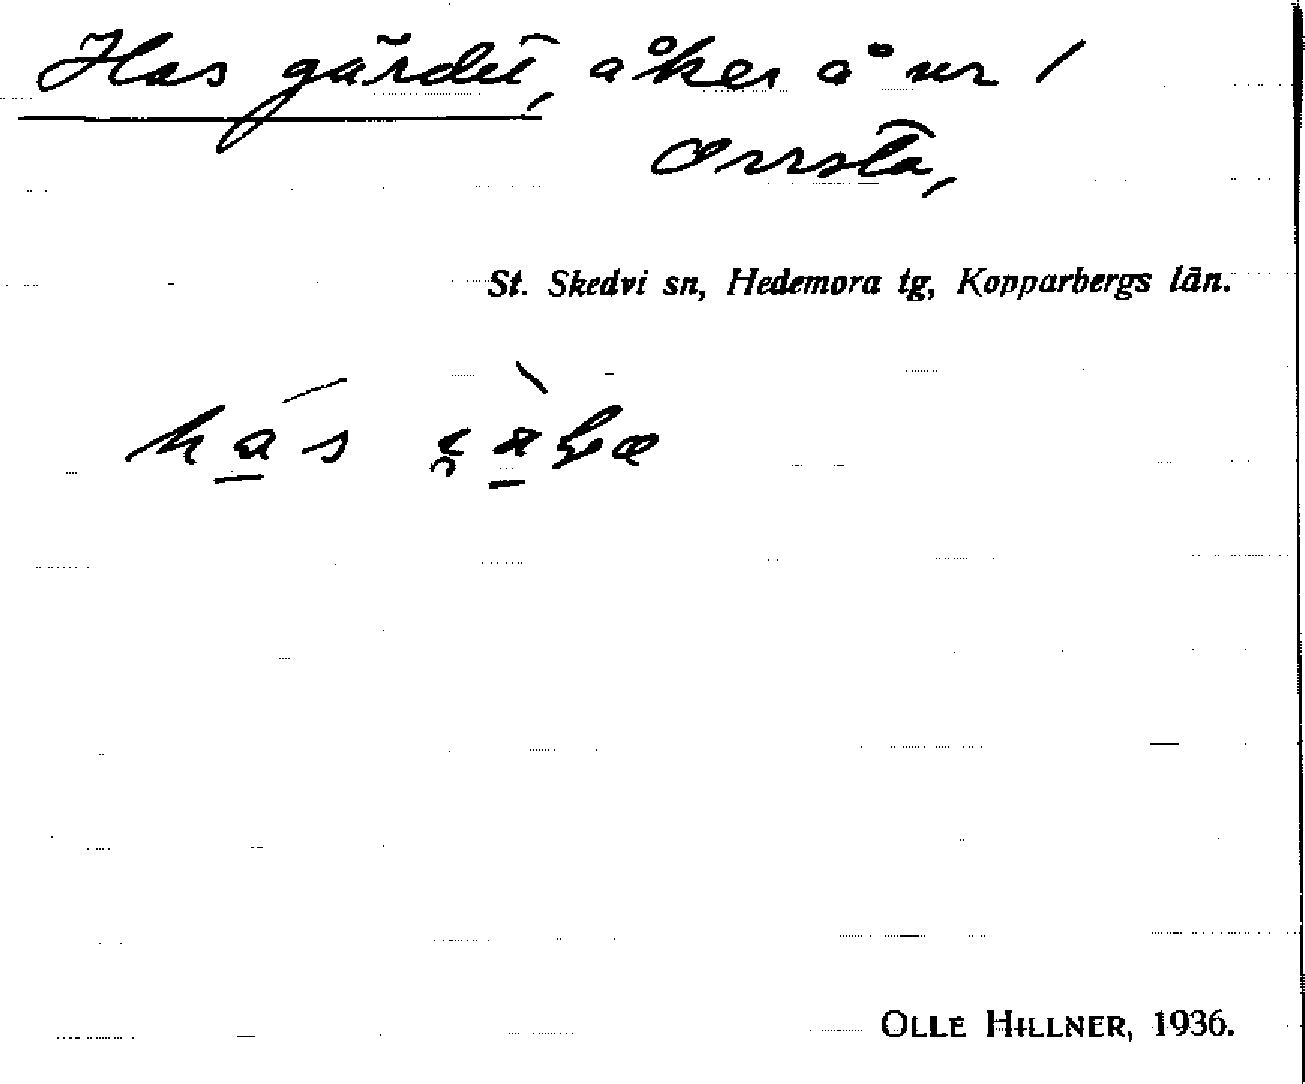 Has gärdet, åker å nr 1
Orrsta,
St. Skedvi sn, Hedemora tg, Kopparbergs län.
OLLE HILLNER, 1936.